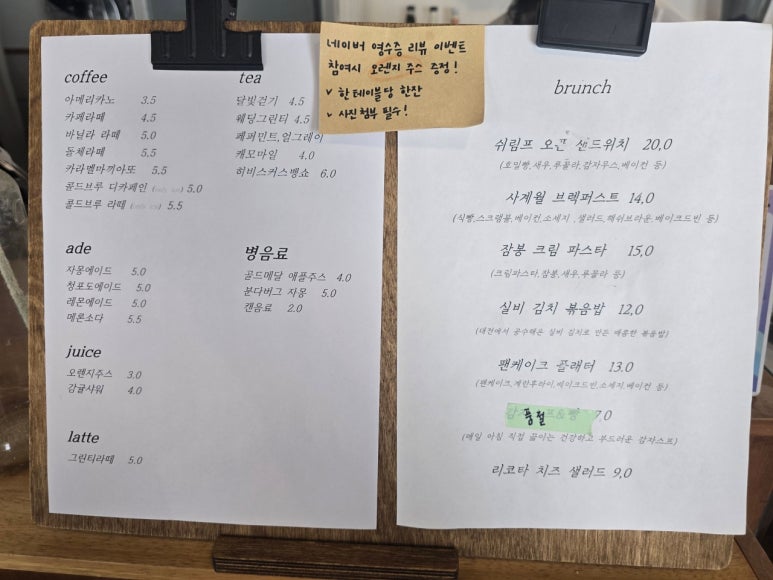 네이버 영수증 리뷰 이벤트
참여시 오렌지 주스 증정!
✓ 한테이블당 한잔
✓ 사진첨부 필수!
coffee
아메리카노 3.5
카페라떼 4.5
바닐라 라떼 5.0
돌체라떼 5.5
카라멜마끼아또 5.5
콜드브루 디카페인 5.0
콜드브루 라떼 5.5
tea
달빛걷기 4.5
웨딩그린티 4.5
페퍼민트,얼그레이
캐모마일 4.0
히비스커스뱅쇼 6.0
ade
자몽에이드 5.0
청포도에이드 5.0
레몬에이드 5.0
메론소다 5.5
병음료
골드메달 애플주스 4.0
분다버그 자몽 5.0
캔음료 2.0
juice
오렌지주스 3.0
감귤샤워 4.0
latte
그린티라떼 5.0
brunch
쉬림프 오픈 샌드위치 20,0
(호밀빵,새우,루꼴라,감자무스,베이컨 등)
사계월 브랙퍼스트 14,0
(식빵,스크램블,베이컨,소세지 ,샐러드,해쉬브라운,베이크드빈 등)
잠봉 크림 파스타 15,0
(크림파스타,잠봉,새우,루꼴라 등)
실비 김치 볶음밥 12,0
(대전에서 공수해온 실비 김치로 만든 매콤한 볶음밥)
팬케이크 플래터 13.0
(팬케이크,계란후라이,베이크드빈,소세지,베이컨 등)
품절 7.0
(매일 아침 직접 끓이는 건강하고 부드러운 감자스프)
리코타 치즈 샐러드 9,0